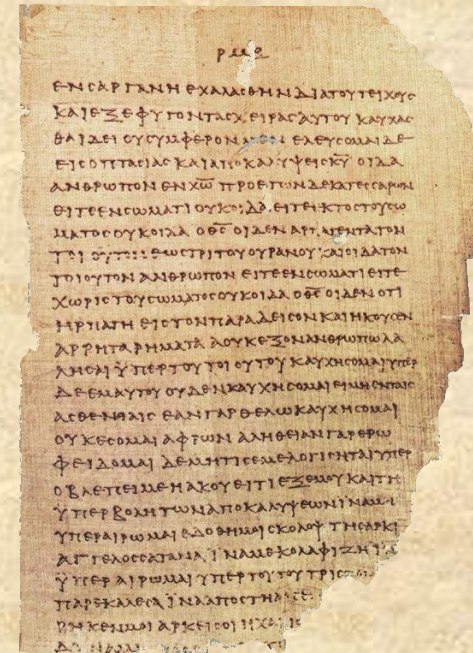 ΕΝϹΑΡΓΑΝΗΕΧΑΛΑϹΘΗΝΔΙΑΤΟΥΤΕΙΧΟΥϹ
ΚΑΙΕΞΕΦΥΓΟΝΤΑϹΧΕΙΡΑϹΑΥΤΟΥΚΑΥΧΑϹ
ΘΑΙΔΕΙΟΥϹΥΜΦΕΡΟΝΜΕΝΕΛΕΥϹΟΜΑΙΔΕ
ΕΙϹΟΠΤΑϹΙΑϹΚΑΙΑΠΟΚΑΛΥΨΕΙϹΚ̅Υ̅ΟΙΔΑ
ΑΝΘΡΩΠΟΝΕΝΧ̅Ω̅ΠΡΟΕΤΩΝΔΕΚΑΤΕϹϹΑΡΩΝ
ΕΙΤΕΕΝϹΩΜΑΤΙΟΥΚΟΙΔΑΕΙΤΕΙΚΤΟϹΤΟΥϹΩ
ΜΑΤΟϹΟΥΚΟΙΔΑΟΘ̅Ϲ̅ΟΙΔΕΝΑΡΠΑΓΕΝΤΑΤΟΝ
ΤΟΙΟΥΤΟΝΕΩϹΤΡΙΤΟΥΟΥΡΑΝΟΥΚΑΙΟΙΔΑΤΟΝ
ΤΟΙΟΥΤΟΝΑΝΘΡΩΠΟΝΕΙΤΕΕΝϹΩΜΑΤΙΕΙΤΕ
ΧΩΡΙϹΤΟΥϹΩΜΑΤΟϹΟΥΚΟΙΔΑΟΘ̅Ϲ̅ΟΙΔΕΝΟΤΙ
ΗΡΠΑΓΗΕΙϹΤΟΝΠΑΡΑΔΕΙϹΟΝΚΑΙΗΚΟΥϹΕΝ
ΑΡΡΗΤΑΡΗΜΑΤΑΑΟΥΚΕΞΟΝΑΝΘΡΩΠΩΛΑ
ΛΗϹΑΙΫΠΕΡΤΟΥΤΟΙΟΥΤΟΥΚΑΥΧΗϹΟΜΑΙΥΠΕΡ
ΔΕΕΜΑΥΤΟΥΟΥΔΕΝΚΑΥΧΗϹΟΜΑΙΕΙΜΗΕΝΤΑΙϹ
ΑϹΘΕΝΕΙΑΙϹΕΑΝΓΑΡΘΕΛΩΚΑΥΧΗϹΟΜΑΙ
ΟΥΚΕϹΟΜΑΙΑΦΡΩΝΑΛΗΘΕΙΑΝΓΑΡΕΡΩ
ΦΕΙΔΟΜΑΙΔΕΜΗΤΙϹΕΜΕΛΟΓΙϹΗΤΑΙΥΠΕΡ
ΟΒΛΕΠΕΙΜΕΗΑΚΟΥΕΙΤΙΕΞΕΜΟΥΚΑΙΤΗ
ΫΠΕΡΒΟΛΗΤΩΝΑΠΟΚΑΛΥΨΕΩΝΪΝΑΜΗ
ΥΠΕΡΑΙΡΩΜΑΙΕΔΟΘΗΜΟΙϹΚΟΛΟΨΤΗϹΑΡΚΙ
ΑΓΓΕΛΟϹϹΑΤΑΝΑΪΝΑΜΕΚΟΛΑΦΙΖΗΪΝΑ
ΫΠΕΡΑΙΡΩΜΑΙΥΠΕΡΤΟΥΤΟΥΤΡΙϹ
ΠΑΡΕΚΑΛΕϹΑΪΝΑΑΠΟϹΤΗΑΠΕ
ΡΗΚΕΝΜΟΙΑΡΚΕΙϹΟΙΗΧΑΡΙϹ